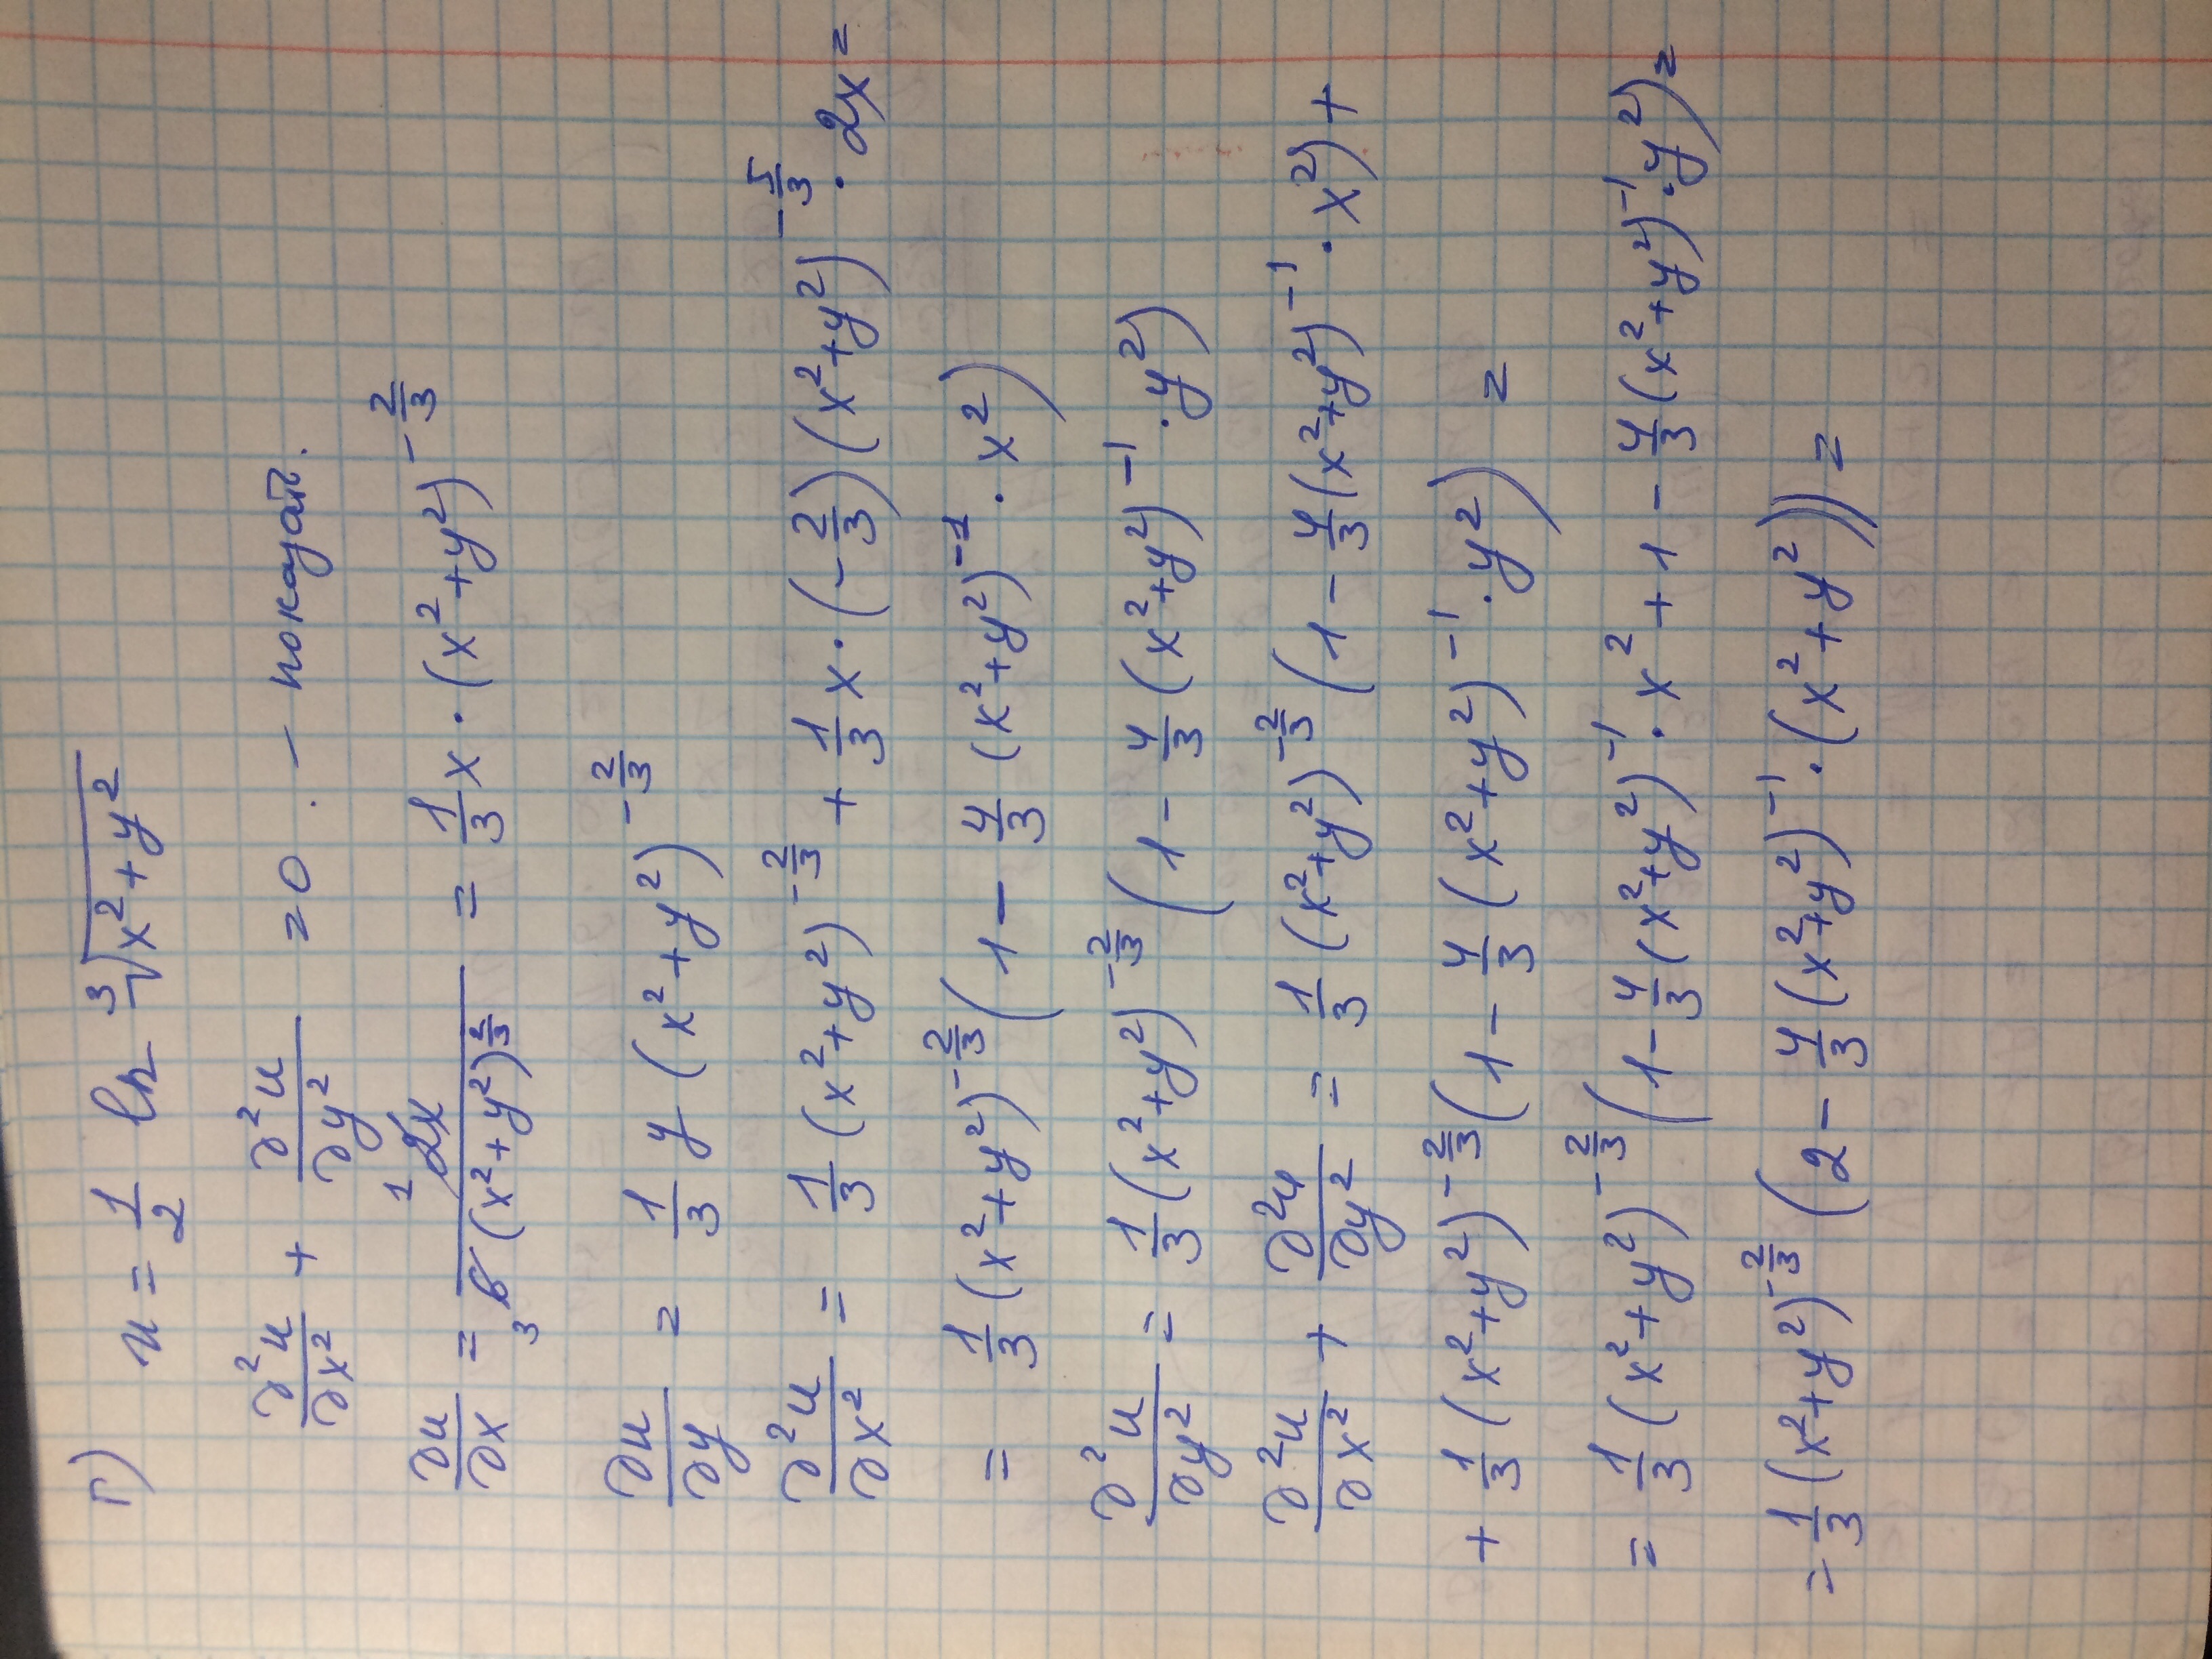 г) u = 1/2 ln ∛(x² + y²)
∂²u/∂x² + ∂²u/∂y² = 0. – показат.
∂u/∂x = 1 2x / 3 6(x² + y²)^(2/3) = 1/3 x · (x² + y²)^(-2/3)
∂u/∂y = 1/3 y (x² + y²)^(-2/3)
∂²u/∂x² = 1/3 (x² + y²)^(-2/3) + 1/3 x · (-2/3)(x² + y²)^(-5/3) · 2x =
= 1/3 (x² + y²)^(-2/3) (1 - 4/3 (x² + y²)^(-1) · x²)
∂²u/∂y² = 1/3 (x² + y²)^(-2/3) (1 - 4/3 (x² + y²)^(-1) · y²)
∂²u/∂x² + ∂²u/∂y² = 1/3 (x² + y²)^(-2/3) (1 - 4/3 (x² + y²)^(-1) · x²) +
+ 1/3 (x² + y²)^(-2/3) (1 - 4/3 (x² + y²)^(-1) · y²) =
= 1/3 (x² + y²)^(-2/3) (1 - 4/3 (x² + y²)^(-1) · x² + 1 - 4/3 (x² + y²)^(-1) · y²) =
= 1/3 (x² + y²)^(-2/3) (2 - 4/3 (x² + y²)^(-1) · (x² + y²)) =